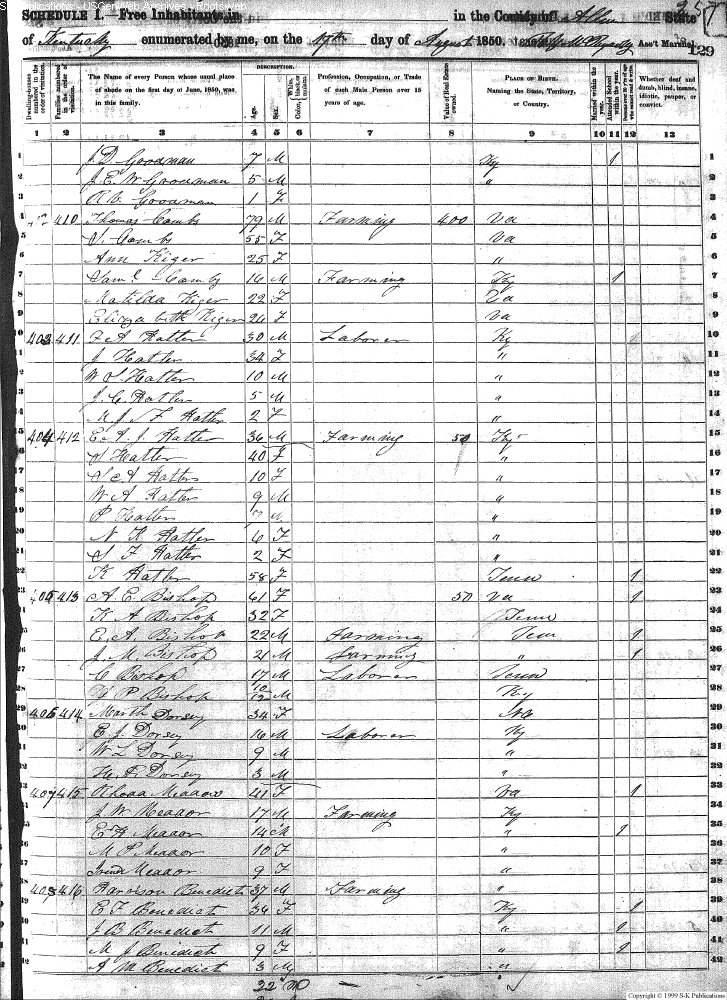 Publications - USGenWeb Archives - Rootsweb
257
SCHEDULE I.—Free Inhabitants in in the County of Allen State
of Kentucky enumerated by me, on the 17th day of August 1850. Ass't Marshal
129
Dwelling-houses numbered in the order of visitation.
Families numbered in the order of visitation.
The Name of every Person whose usual place of abode on the first day of June, 1850, was in this family.
DESCRIPTION.
Age.
Sex.
White, black, or mulatto.
Color,
Profession, Occupation, or Trade of each Male Person over 15 years of age.
Value of Real Estate owned.
PLACE OF BIRTH. Naming the State, Territory, or Country.
Married within the year.
Attended School within the year.
Persons over 20 y'rs of age who cannot read & write.
Whether deaf and dumb, blind, insane, idiotic, pauper, or convict.
1 2 3 4 5 6 7 8 9 10 11 12 13
1 J. D. Goodman 7 M Ky 1 1
2 J. E. W Goodman 5 M " 2
3 Goodman 1 F 3
4 410 Thomas Comby 79 M Farming 400 Va 4
5 S. Comby 55 F Va 5
6 Ann Kiger 25 F " 6
7 Saml Comby 16 M Farming Ky 1 7
8 Matilda Kiger 22 F Va 8
9 Elizabeth Kiger 26 F Va 9
10 411 Hatler 30 M Laborer Ky 10
11 J Hatler 34 F " 11
12 W S Hatler 10 M " 12
13 J. C Hatler 5 M " 13
14 M J S F Hatler 2 F " 14
15 404 412 E. A. J Hatler 36 M Farming 50 Ky 15
16 S Hatler 40 F " 16
17 Hatler 10 F " 17
18 W A Hatler 9 M " 18
19 P Hatler 7 M " 19
20 N K Hatler 6 F " 20
21 S F Hatler 2 F " 21
22 K Hatler 58 F Tenn 1 22
23 405 413 A. E. Bishop 61 F 50 Va 1 23
24 K A Bishop 32 F Tenn 24
25 E. A. Bishop 22 M Farming Tenn 1 25
26 J. M. Bishop 21 M Farming " 1 26
27 C Bishop 17 M Laborer Tenn 27
28 P Bishop 10/12 M Ky 28
29 414 Marth Dorsey 34 F 29
30 E J. Dorsey 16 M Laborer Ky 30
31 W L Dorsey 9 M " 31
32 Dorsey 3 M " 32
33 407 415 Rhoda Meador 41 F Va 1 33
34 J. W Meador 17 M Farming Ky 34
35 Meador 14 M " 1 35
36 M P Meador 10 F " 36
37 Meador 9 F " 37
38 408 416 Harrison Benedict 37 M Farming " 38
39 E F Benedict 36 F Ky 1 39
40 J B Benedict 11 M " 1 40
41 M J Benedict 9 F " 1 41
42 A M Benedict 3 M " 42
22 M
Copyright © 1999 S-K Publications